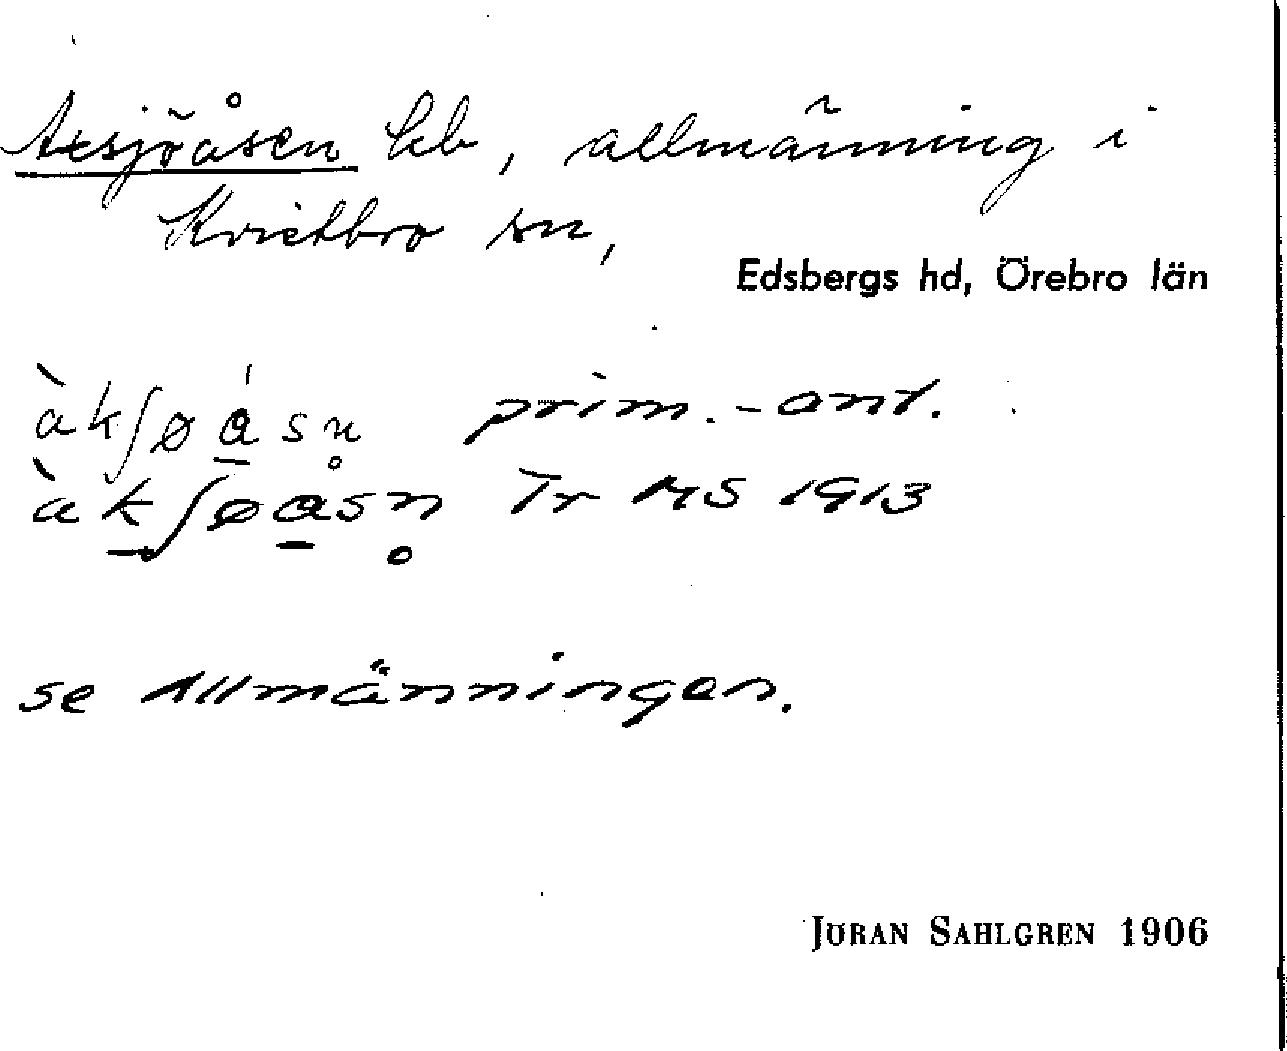 Axsjöåsen lib, allmänning i
Kvistbro sn,
Edsbergs hd, Örebro län
àkʃøåsn̥ prim.-ant.
àkʃøåsn̥ Tr MS 1913
se Allmänningen.
JÖRAN SAHLGREN 1906